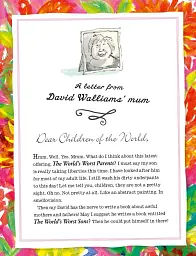 A letter from
David Walliams' mum
Dear Children of the World,
Hmm. Well. Yes. Mmm. What do I think about this latest
offering, The World's Worst Parents? I must say my son
is really taking liberties this time. I have looked after him
for most of my adult life. I still wash his dirty underpants
to this day! Let me tell you, children, they are not a pretty
sight. Oh no. Not pretty at all. Like an abstract painting. In
smellovision.
Then my David has the nerve to write a book about awful
mothers and fathers! May I suggest he writes a book entitled
The World's Worst Sons? Then he could put himself in there!